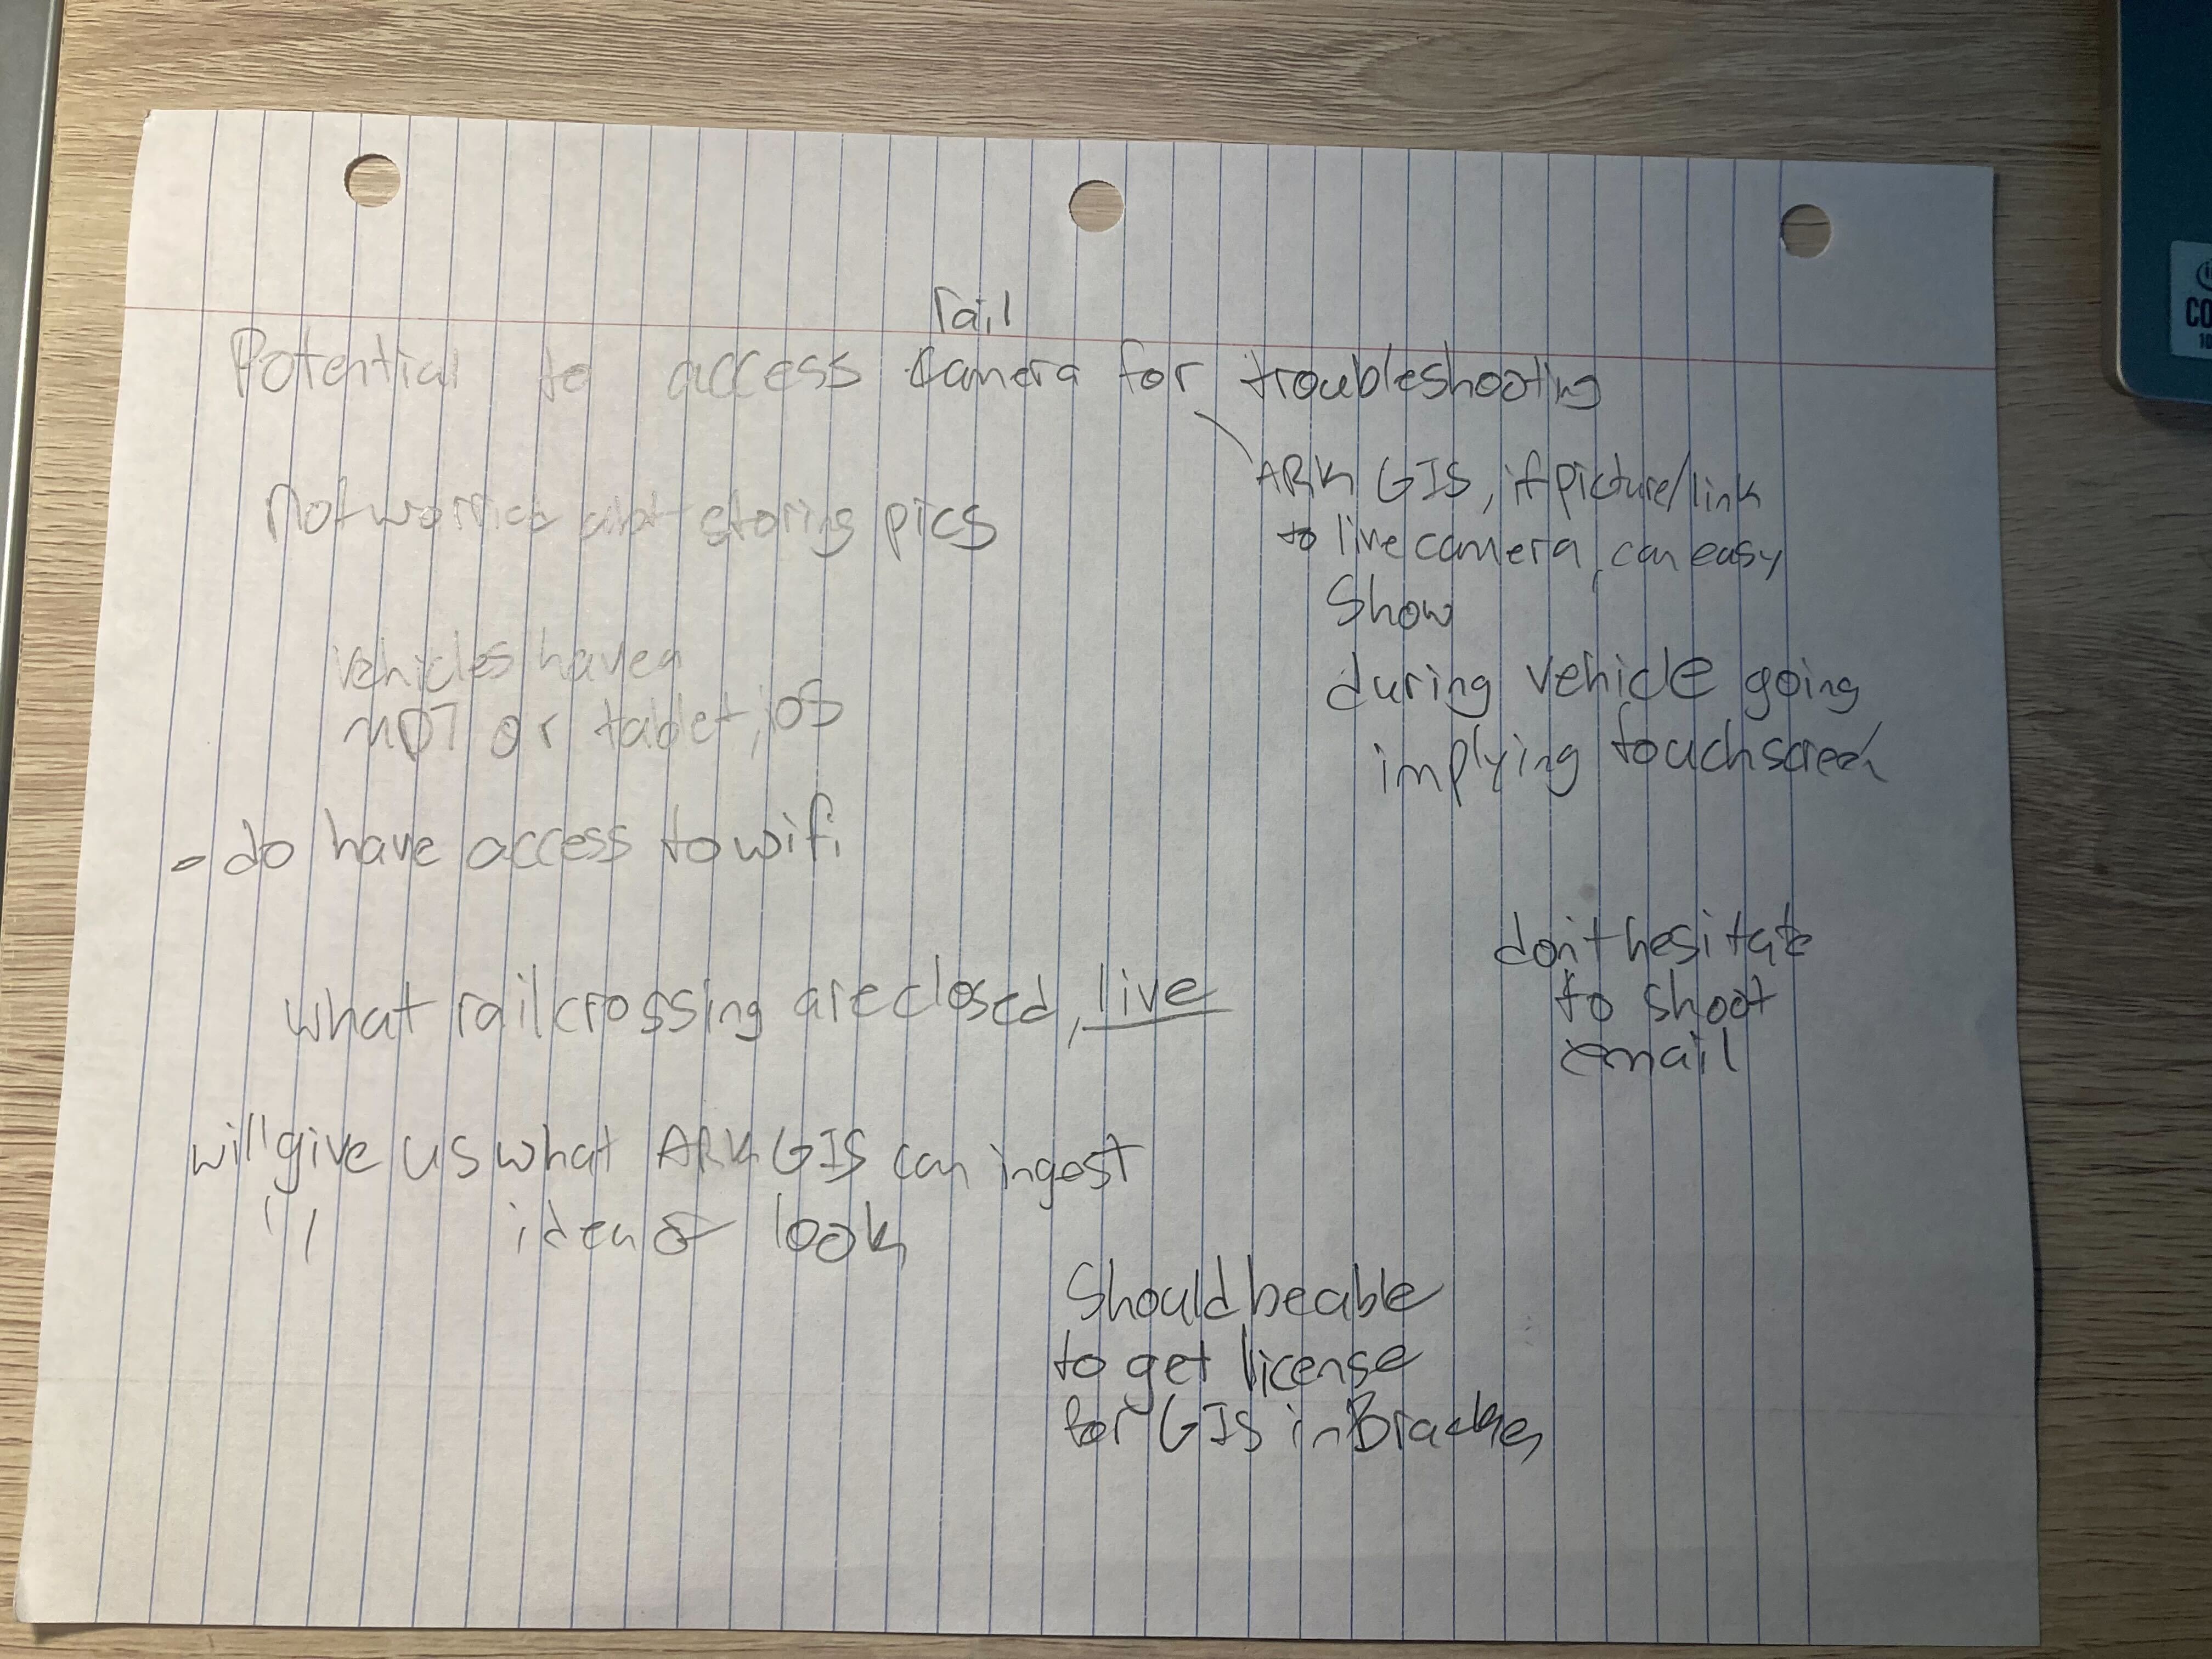 rail
Potential to access camera for troubleshooting
ARK GIS, if picture/link
to live camera, can easy
Show
not worried abt storing pics
during vehicle going
implying touchscreen
vehicles have a
MDT or tablet, iOS
- do have access to wifi
don't hesitate
to shoot
email
what rail crossing are closed, live
will give us what ARK GIS can ingest
" idea of look
Should be able
to get license
for GIS in
CO
10